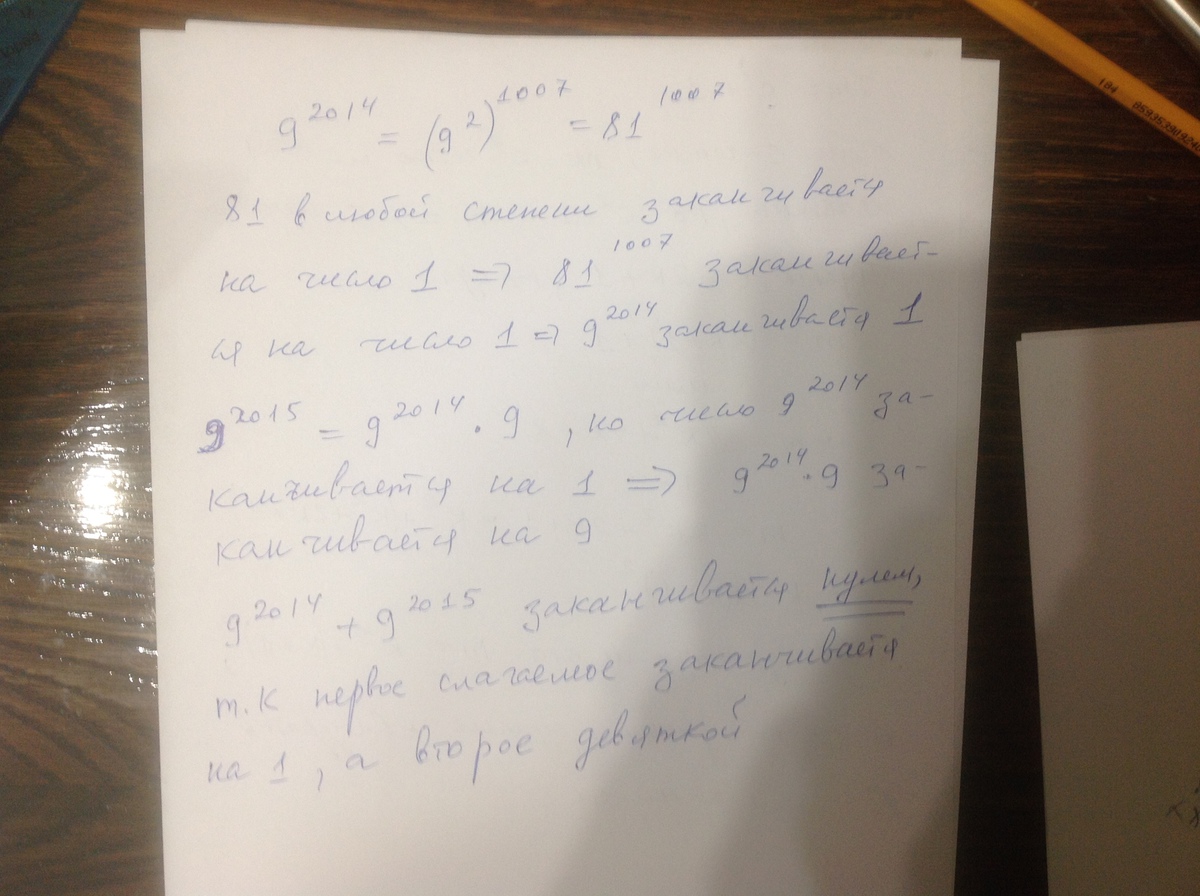 9^2014 = (9^2)^1007 = 81^1007
81 в любой степени заканчивается
на число 1 => 81^1007 заканчивает-
ся на число 1 => 9^2014 заканчивается 1
9^2015 = 9^2014 · 9 , но число 9^2014 за-
канчивается на 1 => 9^2014 · 9 за-
канчивается на 9
9^2014 + 9^2015 заканчивается нулем,
т.к первое слагаемое заканчивается
на 1 , а второе девяткой
184